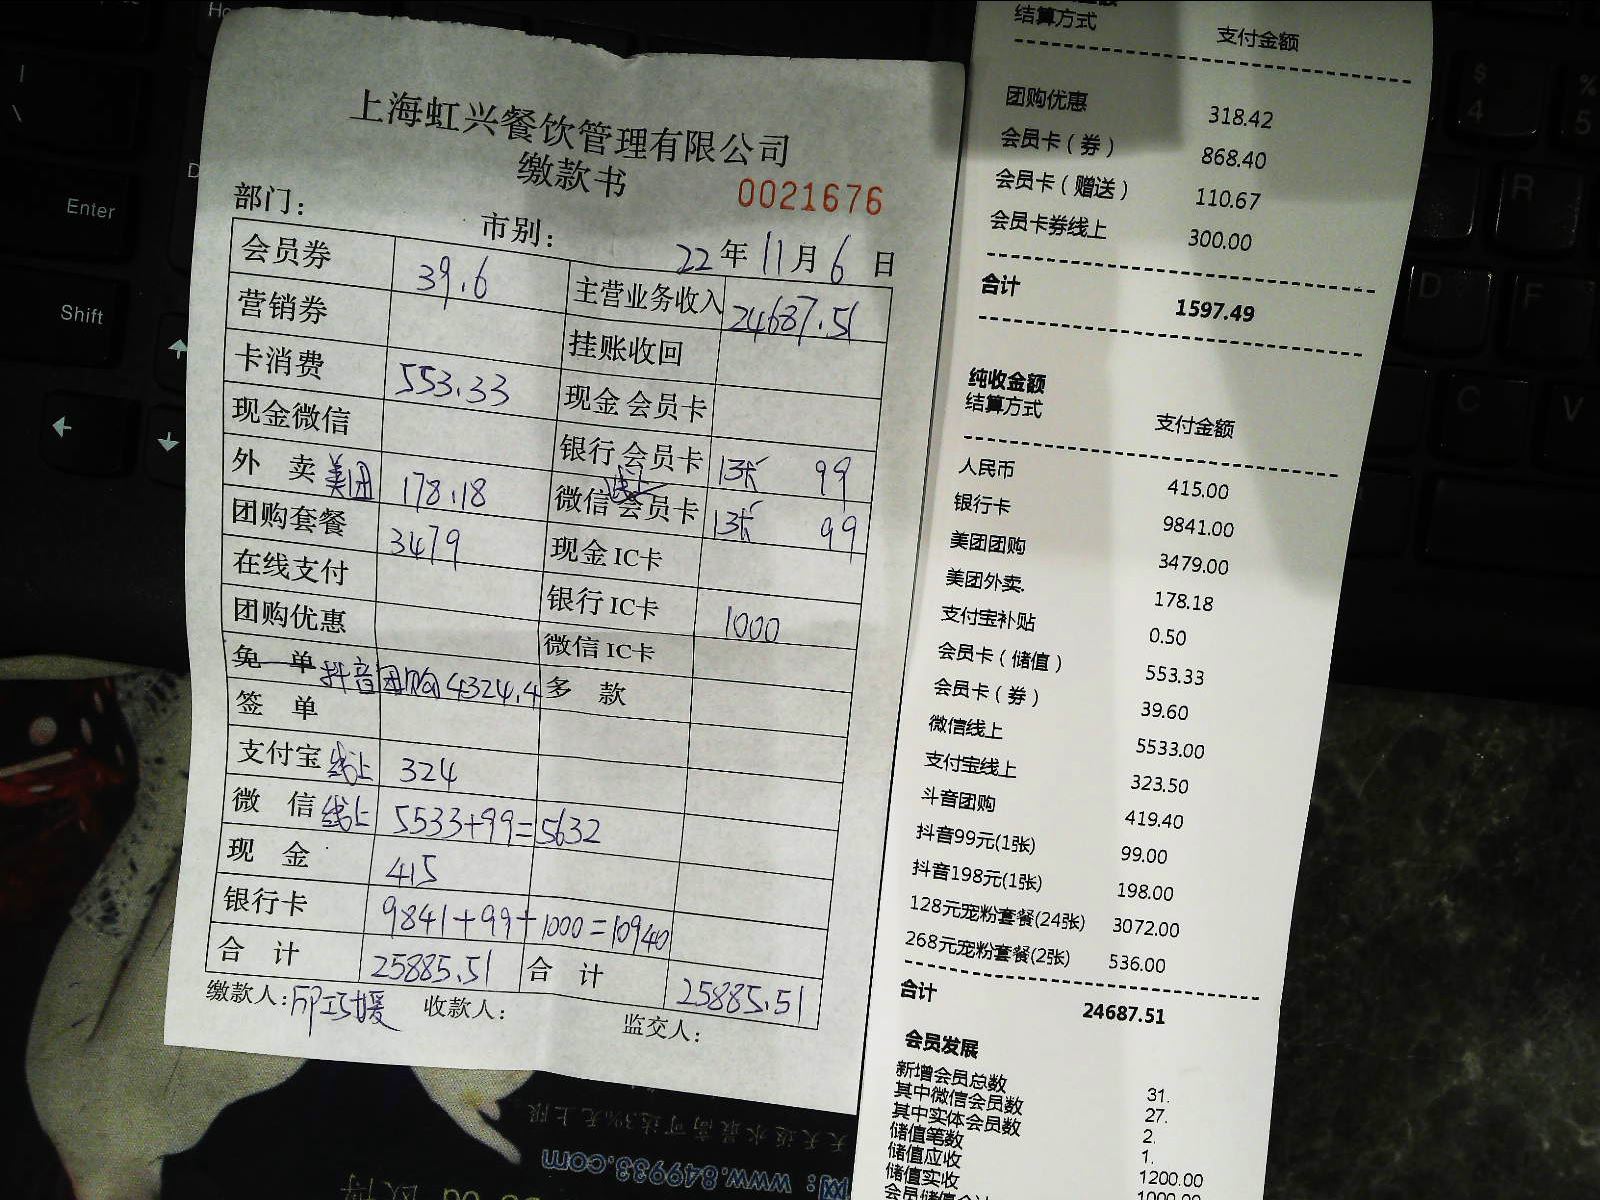 上海虹兴餐饮管理有限公司
缴款书
0021676
部门：
市别：
22年11月6日
会员券 39.6 主营业务收入 24687.51
营销券 挂账收回
卡消费 553.33 现金会员卡
现金微信 银行会员卡 1张 99
外 卖美团 178.18 微信线上会员卡 1张 99
团购套餐 3479 现金IC卡
在线支付 银行IC卡 1000
团购优惠 微信IC卡
免 单抖音团购4324.4 多 款
签 单
支付宝线上 324
微 信线上 5533+99=5632
现 金 415
银行卡 9841+99+1000=10940
合 计 25885.51 合 计 25885.51
缴款人： 收款人： 监交人：
结算方式 支付金额
团购优惠 318.42
会员卡（券） 868.40
会员卡（赠送） 110.67
会员卡券线上 300.00
合计 1597.49
纯收金额
结算方式 支付金额
人民币 415.00
银行卡 9841.00
美团团购 3479.00
美团外卖. 178.18
支付宝补贴 0.50
会员卡（储值） 553.33
会员卡（券） 39.60
微信线上 5533.00
支付宝线上 323.50
斗音团购 419.40
抖音99元(1张) 99.00
抖音198元(1张) 198.00
128元宠粉套餐(24张) 3072.00
268元宠粉套餐(2张) 536.00
合计 24687.51
会员发展
新增会员总数 31.
其中微信会员数 27.
其中实体会员数 2.
储值笔数 1.
储值应收 1200.00
储值实收 1000.00
Enter
Shift
$
4
%
5
R
D
F
C
V
天天返水最高可达3%无上限
www.849933.com